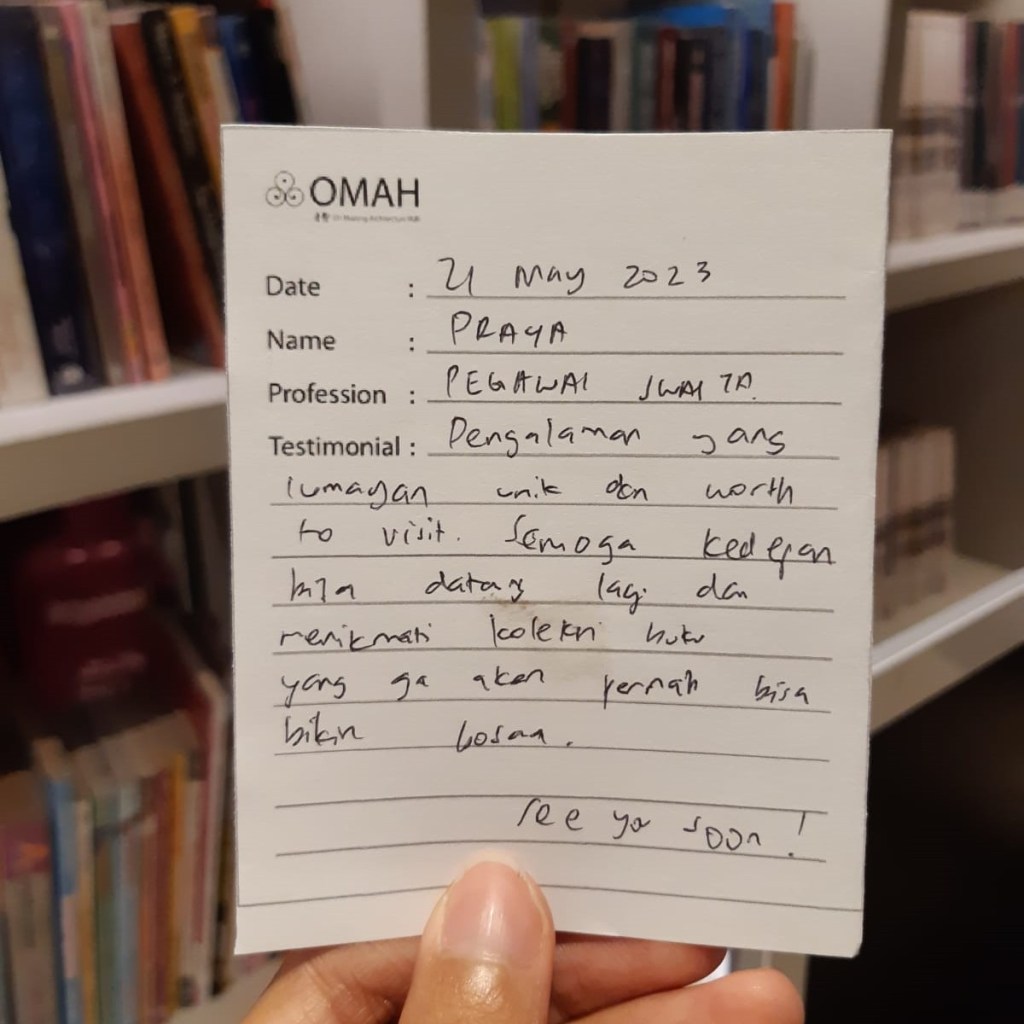 OMAH
Date : 21 May 2023
Name : PRAYA
Profession : PEGAWAI SWASTA
Testimonial : Pengalaman yang
lumayan unik dan worth
to visit. Semoga kedepan
bisa datang lagi dan
menikmati koleksi buku
yang ga akan pernah bisa
bikin bosan.
see ya soon!